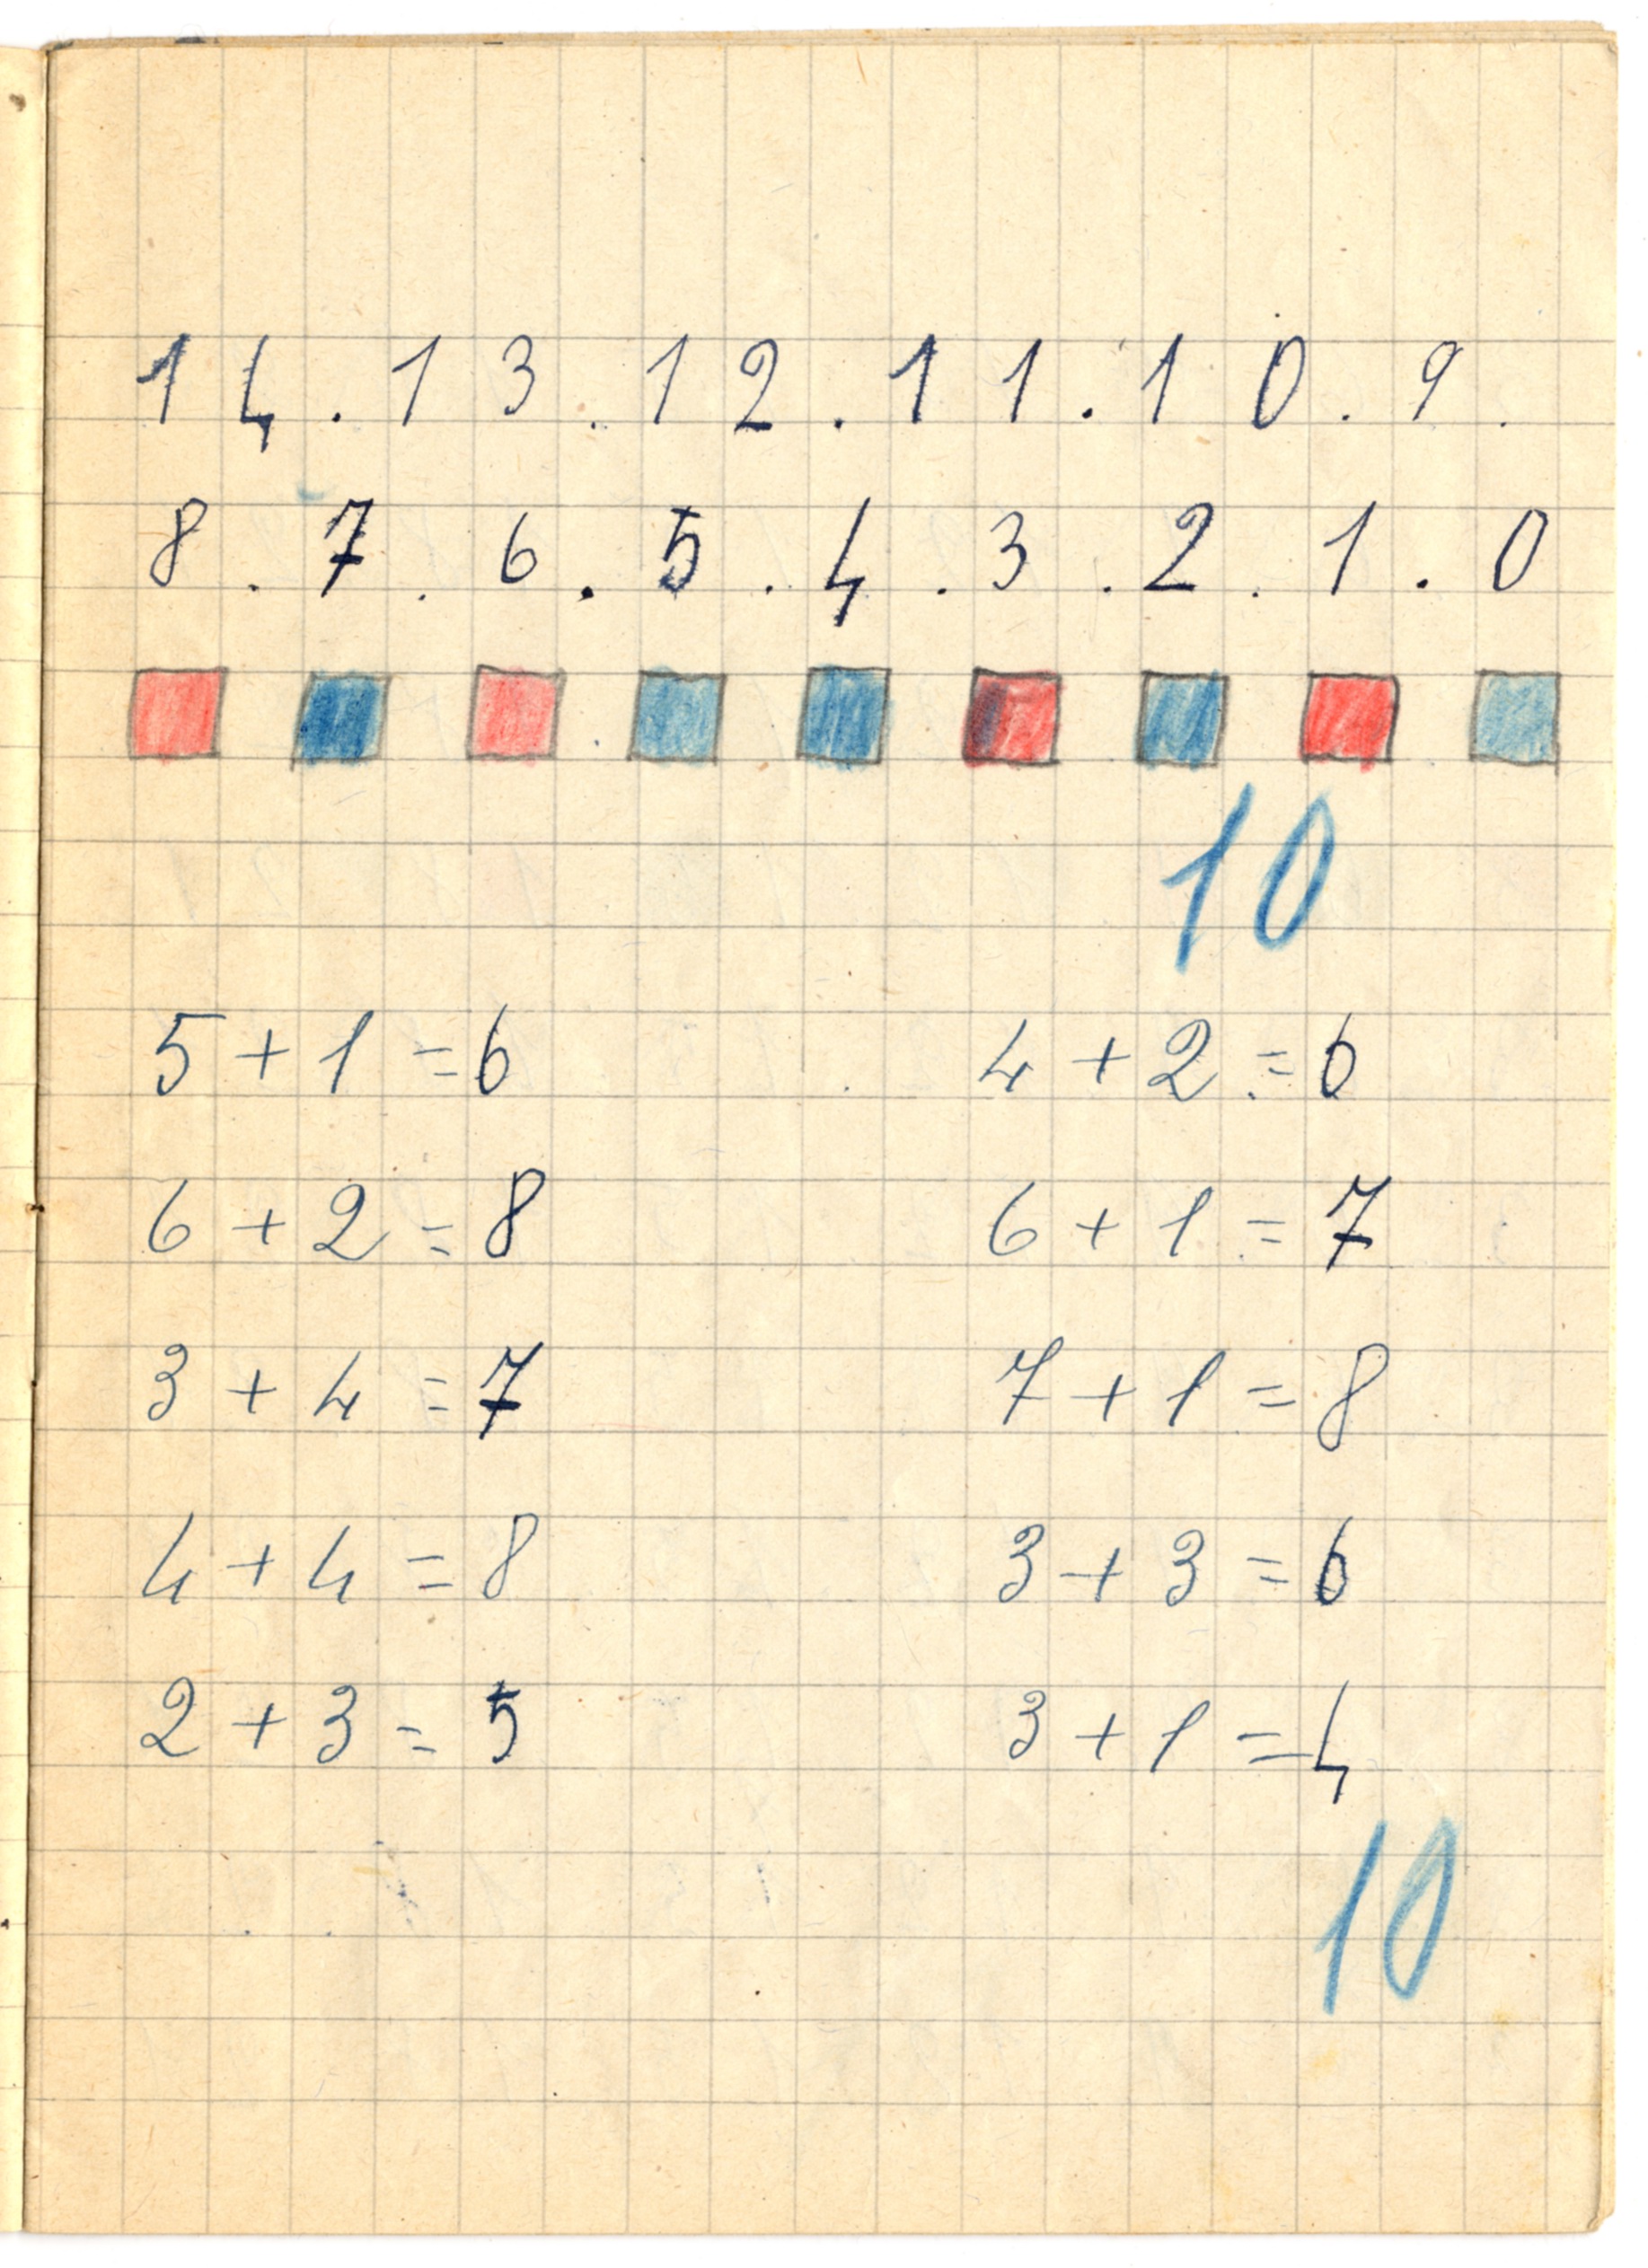 14.13.12.11.10.9.
8.7.6.5.4.3.2.1.0
10
5+1=6 4+2=6
6+2=8 6+1=7
3+4=7 7+1=8
4+4=8 3+3=6
2+3=5 3+1=4
10